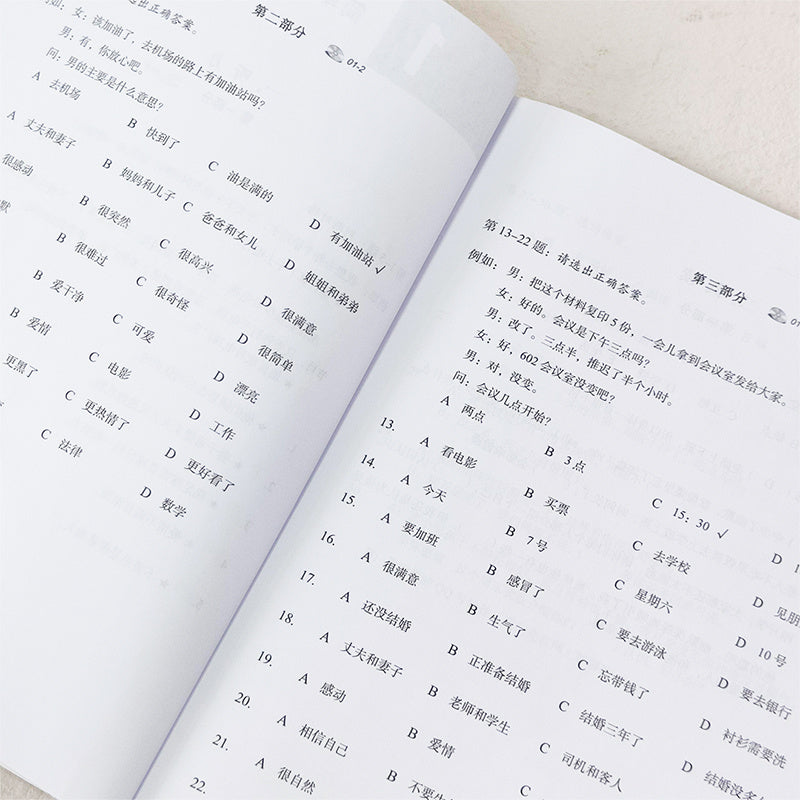 第二部分
选出正确答案。 01-2
例如：女：该加油了，去机场的路上有加油站吗？
男：有，你放心吧。
问：男的主要是什么意思？
A 去机场 B 快到了 C 油是满的 D 有加油站 ✓
A 丈夫和妻子 B 妈妈和儿子 C 爸爸和女儿 D 姐姐和弟弟
很感动 B 很突然 C 很高兴 D 很满意
默 B 很难过 C 很奇怪 D 很简单
B 爱干净 C 可爱 D 漂亮
B 爱情 C 电影 D 工作
更黑了 C 更热情了 D 更好看了
C 法律 D 数学
1
第三部分
第13-22题：请选出正确答案。 01
例如：男：把这个材料复印5份，一会儿拿到会议室发给大家。
女：好的。会议是下午三点吗？
男：改了。三点半，推迟了半个小时。
女：好，602会议室没变吧？
男：对，没变。
问：会议几点开始？
A 两点 B 3点 C 15：30 ✓ D 1
13. A 看电影 B 买票 C 去学校 D 见朋
14. A 今天 B 7号 C 星期六 D 10号
15. A 要加班 B 感冒了 C 要去游泳 D 要去银行
16. A 很满意 B 生气了 C 忘带钱了 D 衬衫需要洗
17. A 还没结婚 B 正准备结婚 C 结婚三年了 D 结婚没多
18. A 丈夫和妻子 B 老师和学生 C 司机和客人
19. A 感动 B 爱情 C
20. A 相信自己 B 不要
21. A 很自然
22.